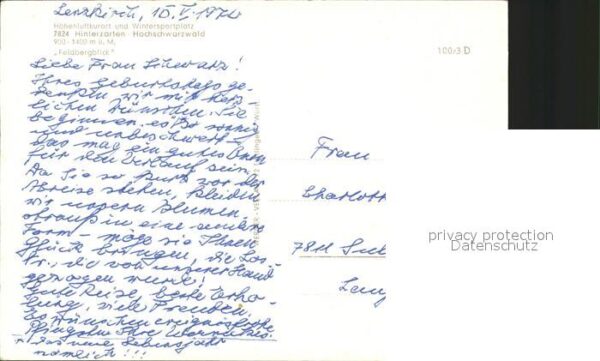 Lenzkirch, 10.V.1974
Höhenluftkurort und Wintersportplatz
7824 Hinterzarten Hochschwarzwald
900 - 1400 m ü. M.
"Feldbergblick"
100/3 D
Liebe Frau Schwarz!
Ihres Geburtstags ge-
denken wir mit herz-
lichen Wünschen. Sie
beginnen es so sonnig
und unbeschwert -
das mag ein gutes Omen
für den Verlauf sein.
Da Sie so kurz vor der
Abreise stehen, kleiden
wir unseren Blumen-
strauß in eine andere
Form - möge sie Ihnen
Glück bringen, die Los-
Nr., die von unserer Hand
gezogen wurde!
Gute Reise, beste Erho-
lung, viele Freuden.
Es wünschen ereignisfrohe
Pfingsten Ihre
das neue Lebensjahr
nämlich!!!
Frau
Charlott
7811
privacy protection
Datenschutz